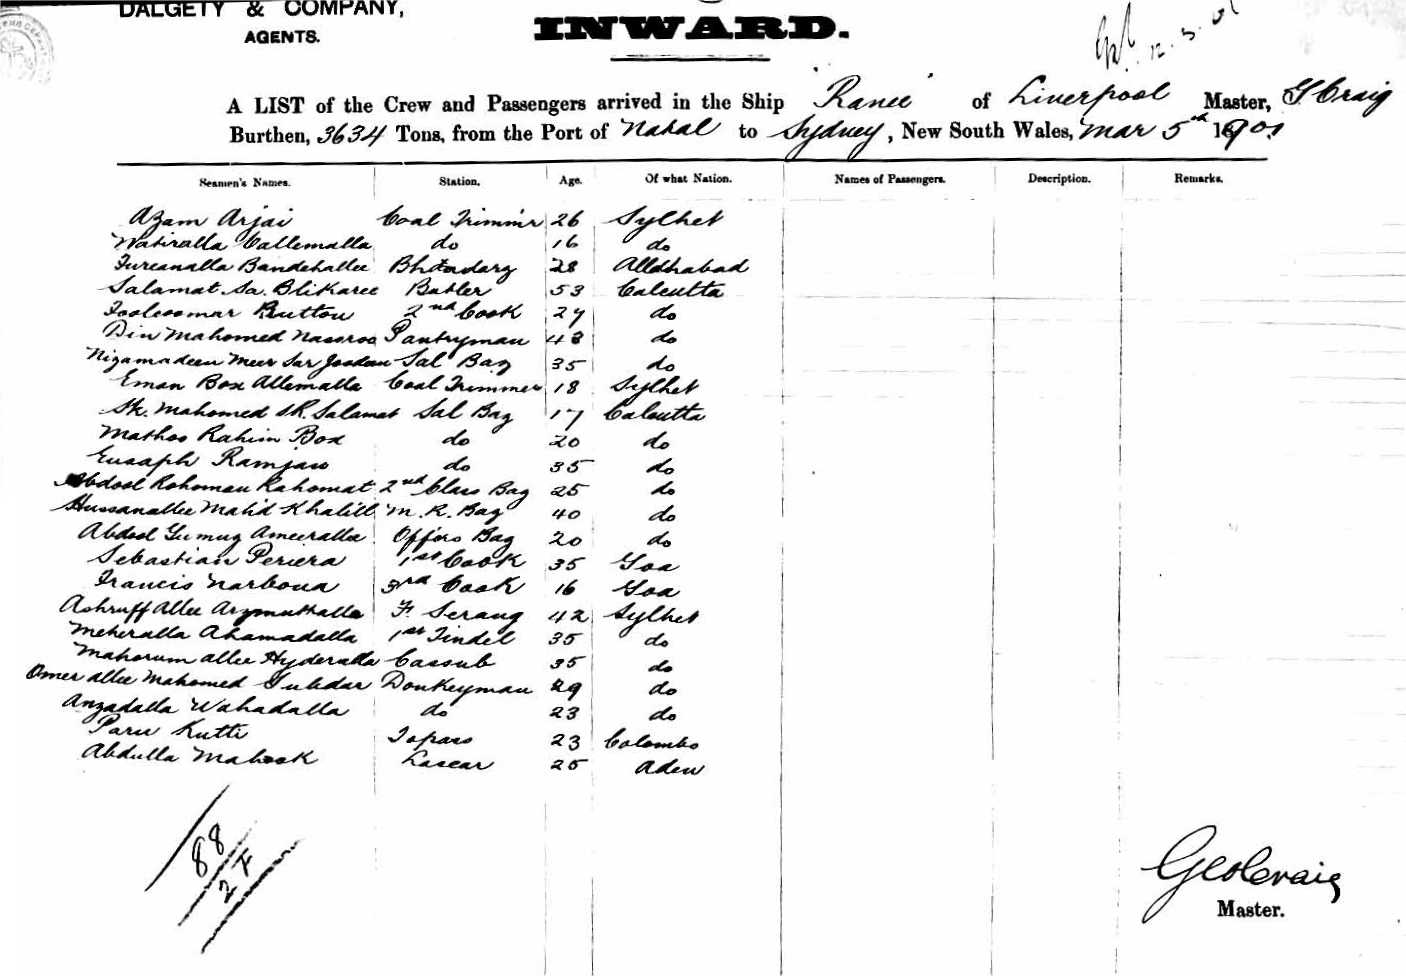 DALGETY & COMPANY,
AGENTS.
INWARD.
A LIST of the Crew and Passengers arrived in the Ship "Ranee" of Liverpool Master, G Craig
Burthen, 3634 Tons, from the Port of Natal to Sydney, New South Wales, Mar 5th 1901
Seamen's Names. Station. Age. Of what Nation. Names of Passengers. Description. Remarks.
Azam Arjai Coal Trimmr 26 Sylhet
Watiralla Callemalla do 16 do
Tureanalla Bandehallee Bhandary 28 Allahabad
Salamat Sa. Blikaree Butler 53 Calcutta
Button 2nd Cook 27 do
Din Mahomed Nasoroo Pantryman 48 do
Nizamadeen Meer Sar Joodau Sal Bag 35 do
Eman Box Allemalla Coal Trimmer 18 Sylhet
Sk. Mahomed SK. Salamat Sal Bag 17 Calcutta
Mathoo Rahim Box do 20 do
Eusaph Ramjan do 35 do
Abdool Rohoman Rahomat 2nd Class Bag 25 do
Hussanallee Mahd Khalill M. R. Bag 40 do
Abdool Gumug Ameeralla Offirs Bag 20 do
Sebastian Periera 1st Cook 35 Goa
Francis Narboua 3rd Cook 16 Goa
Ashruff Allee Arzmuthalla F. Serang 42 Sylhet
Meheralla Ahamadalla 1st Tindel 35 do
Mahorum Allee Hyderalla Cassub 35 do
Omer allee Mahomed Subdar Donkeyman 29 do
Anzadalla Wahadalla do 23 do
Paru Kutti Topass 23 Colombo
Abdulla Mabook Lascar 25 Aden
88
27
Geo Craig
Master.